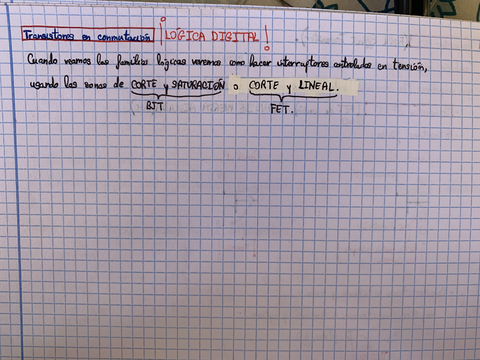 Transistores en conmutación ¡LÓGICA DIGITAL!
Cuando veamos las familias lógicas veremos como hacer interruptores controlados en tensión,
usando las zonas de CORTE y SATURACIÓN o CORTE y LINEAL.
BJT FET.